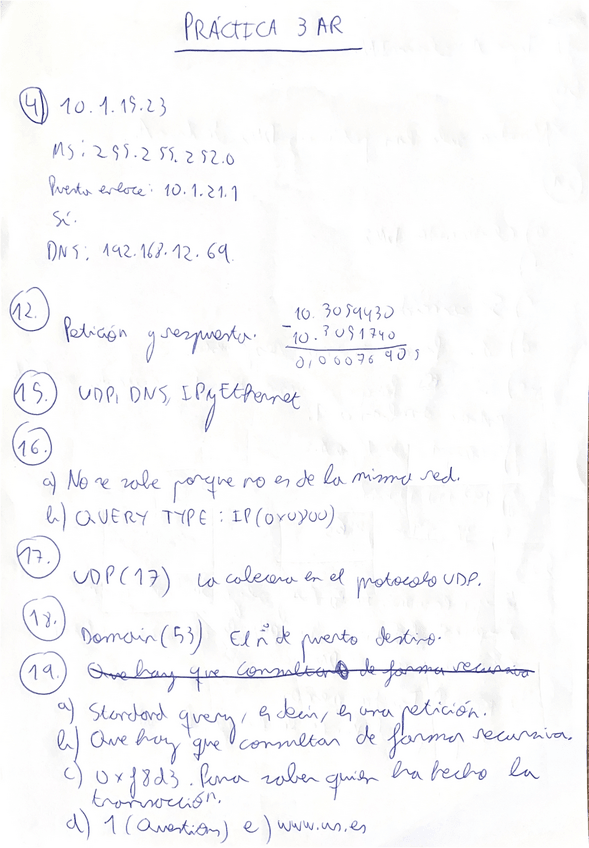 PRÁCTICA 3 AR
4) 10.1.15.23
MS: 255.255.252.0
Puerta enlace: 10.1.21.1
Sí.
DNS: 192.168.12.69.
12. Petición y respuesta.
10.3059430
- 10.3051740
0,0007690 s
15. UDP, DNS, IP y Ethernet
16.
a) No se sabe porque no es de la misma red.
b) QUERY TYPE: IP (0x0800)
17. UDP (17) La cabecera en el protocolo UDP.
18. Domain (53) El nº de puerto destino.
19. Que hay que consultar de forma recursiva
a) Standard query, es decir, es una petición.
b) Que hay que consultar de forma recursiva.
c) 0xf8d3. Para saber quien ha hecho la
transacción.
d) 1 (Questions) e) www.us.es